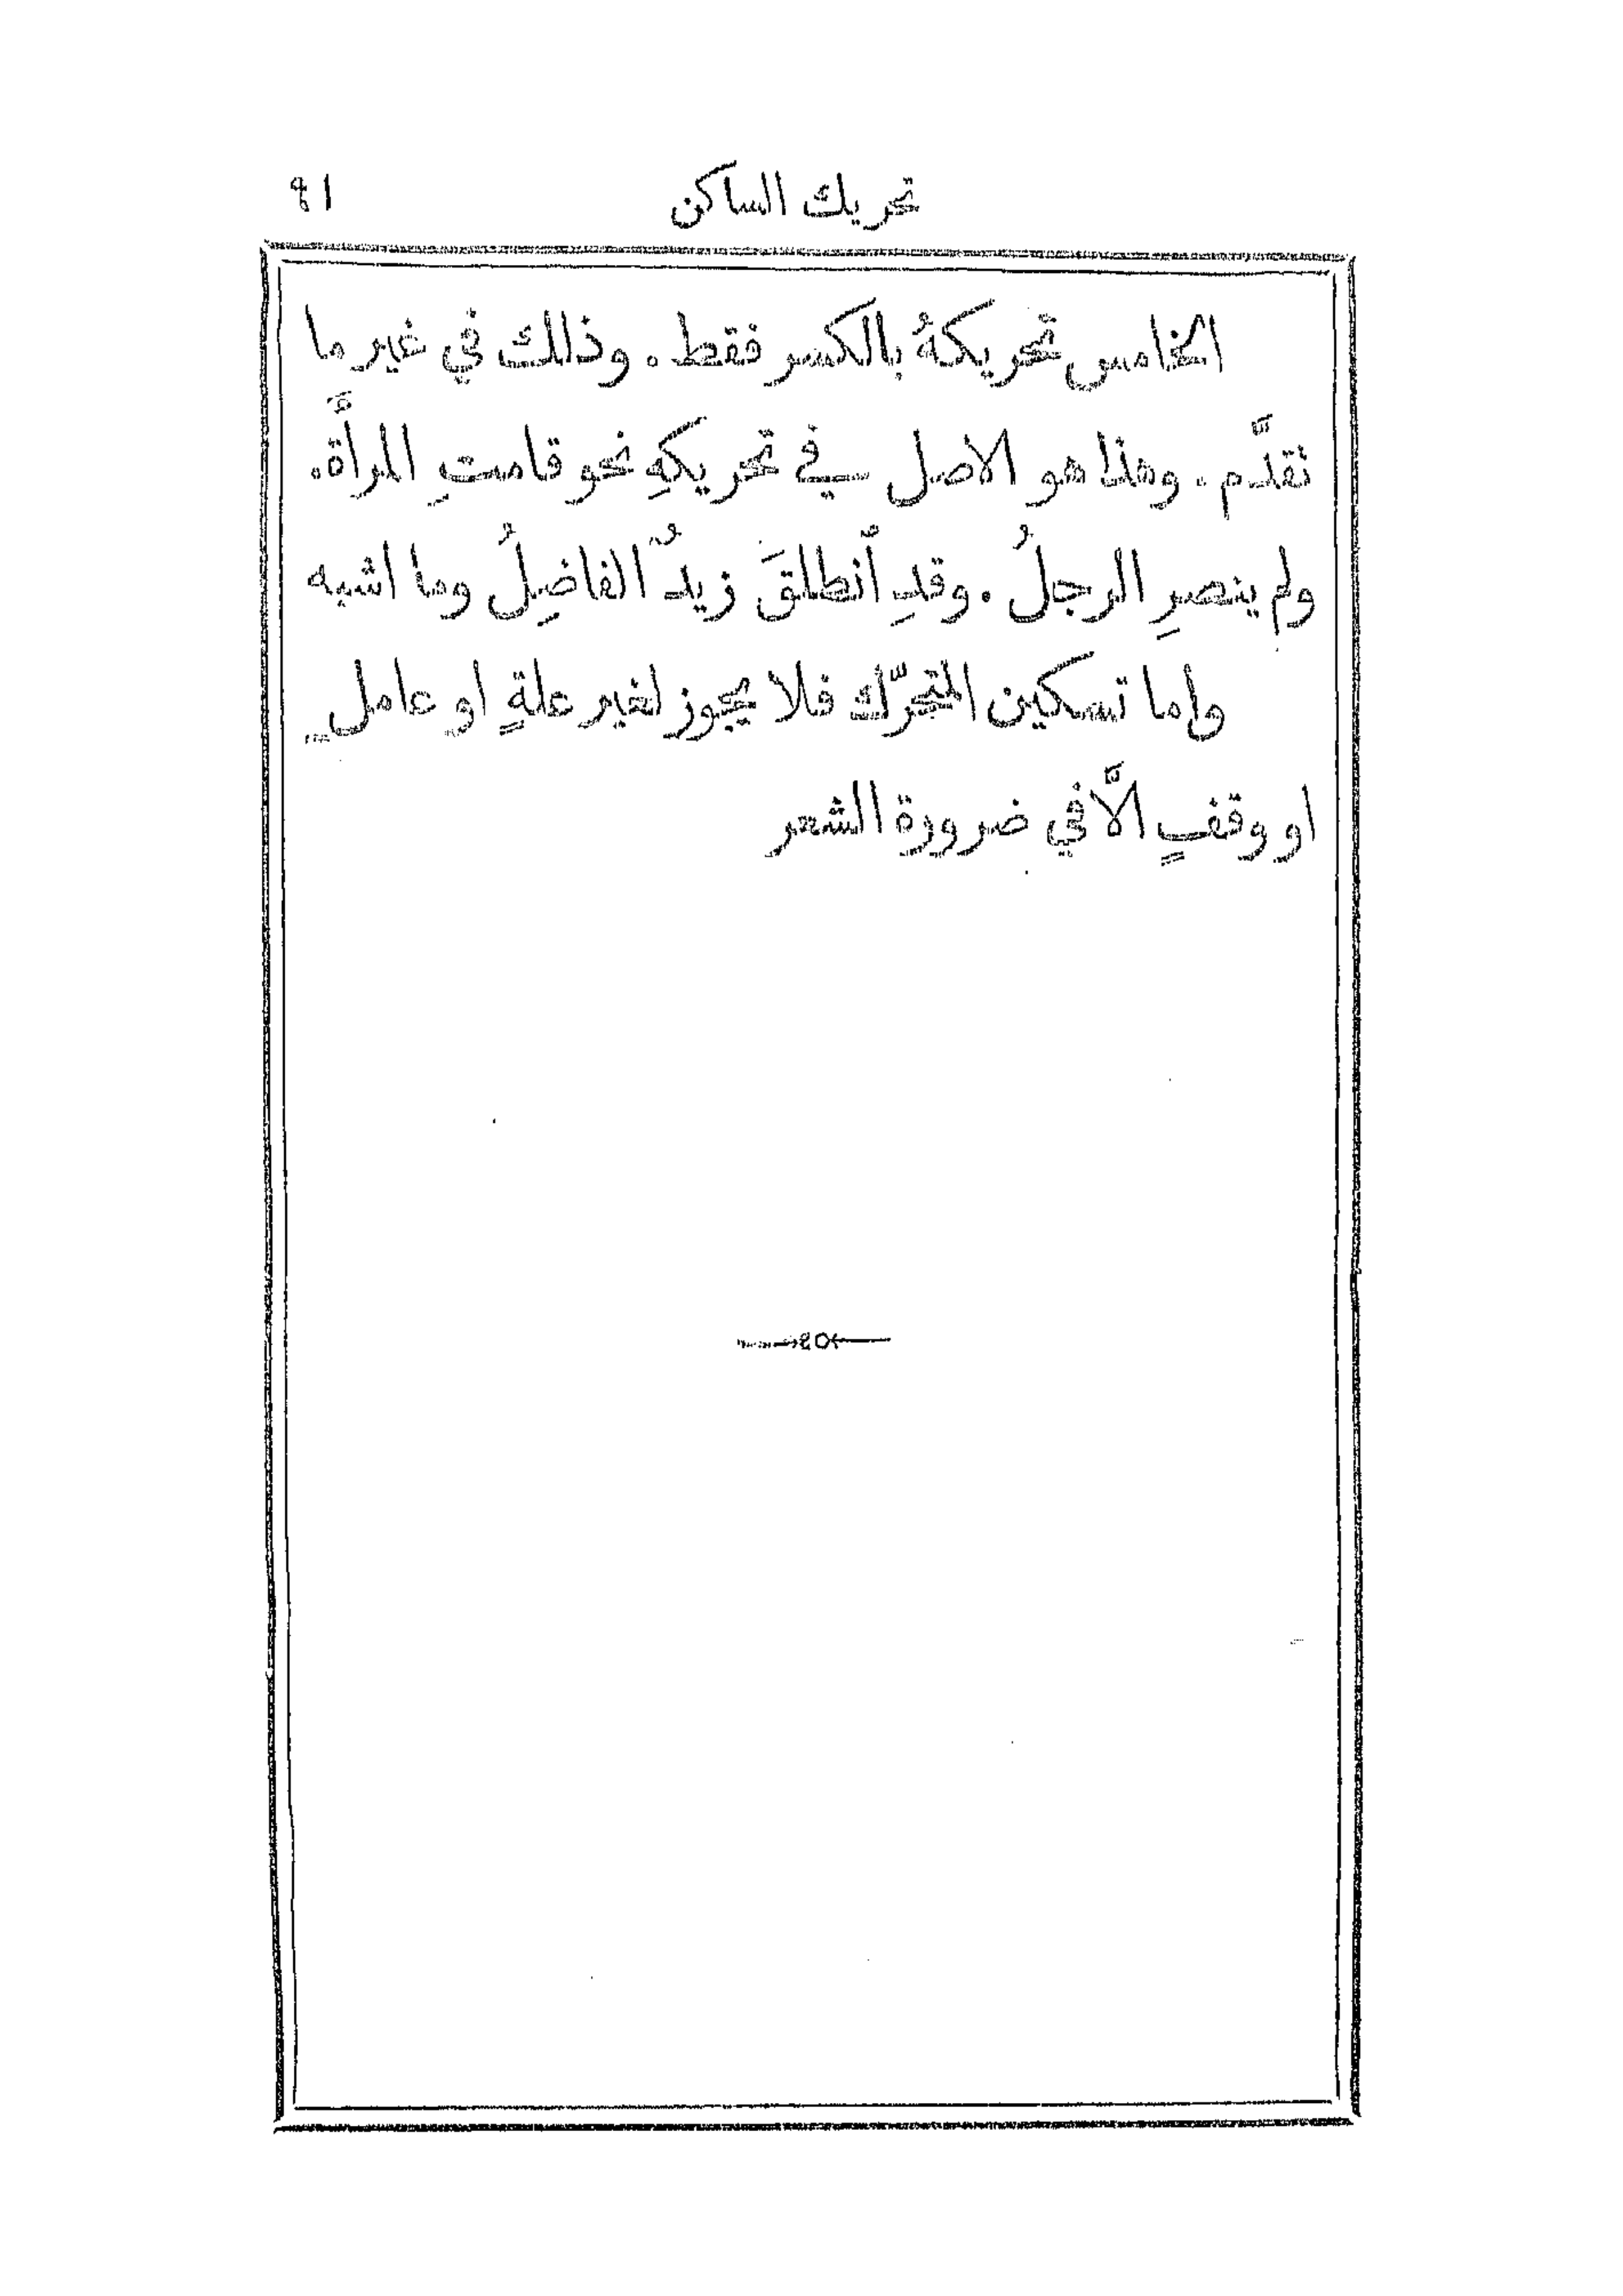 تحريك الساكن ٩١
الخامس تحريكهُ بالكسر فقط. وذلك في غير ما
تقدَّم. وهذا هو الاصل في تحريكهِ نحو قامتِ المرأَة.
ولم ينصرِ الرجلُ. وقدِ ٱنطلقَ زيدٌ الفاضِلُ وما اشبه
وإما تسكين المتحرّك فلا يجوز لغير علةٍ او عاملٍ
او وقفٍ الَّا في ضرورة الشعر